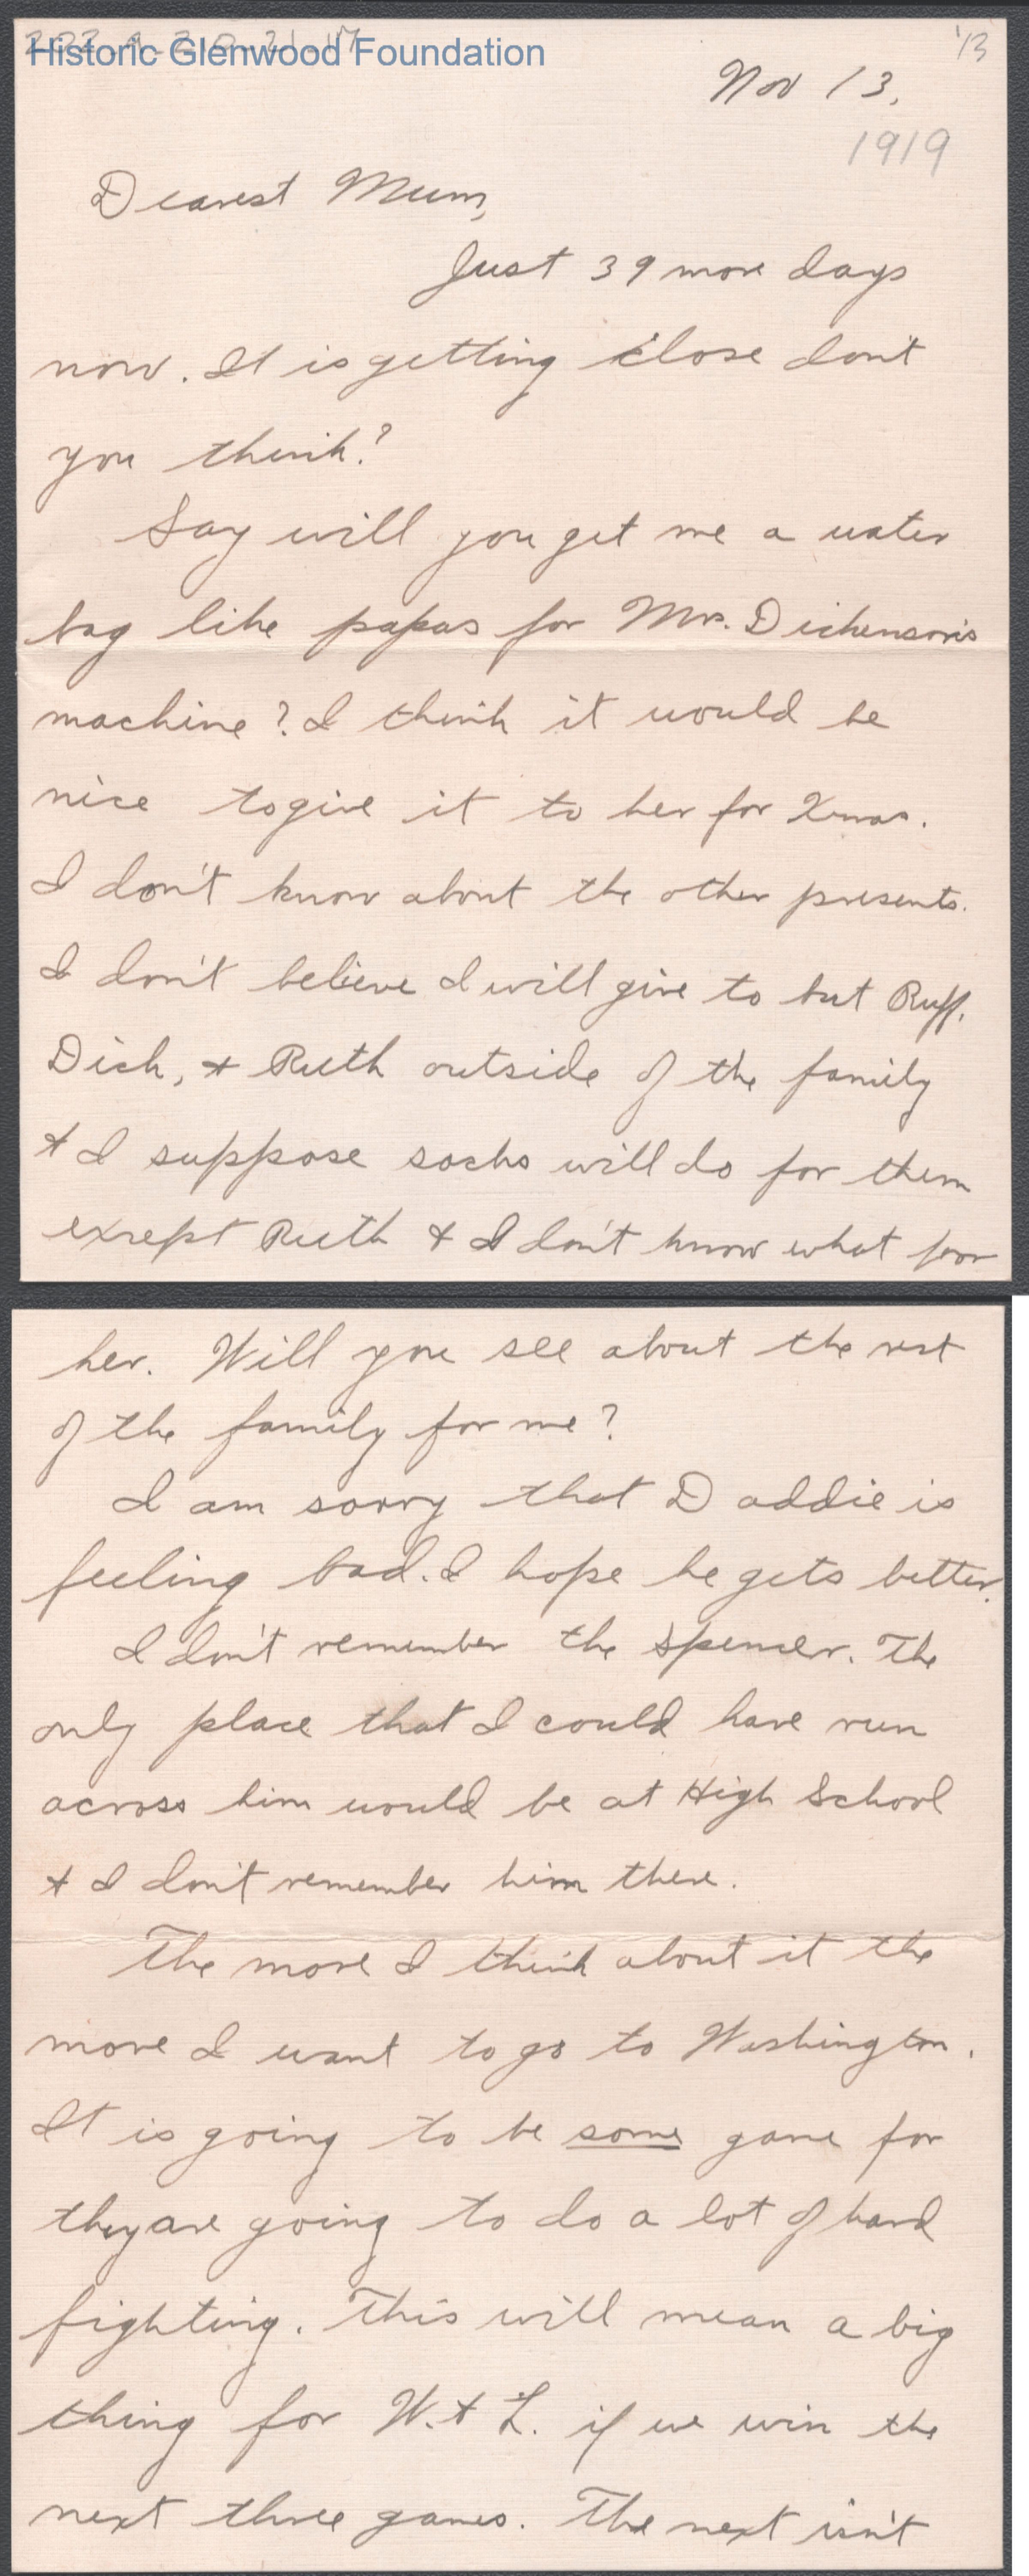 Historic Glenwood Foundation
'13
Nov 13,
1919
Dearest Mum,
Just 39 more days
now. It is getting close don't
you think?
Say will you get me a water
bag like papas for Mrs. Dickenson's
machine? I think it would be
nice to give it to her for Xmas.
I don't know about the other presents.
I don't believe I will give to but Ruff,
Dick, & Ruth outside of the family
& I suppose socks will do for them
except Ruth & I don't know what for
her. Will you see about the rest
of the family for me?
I am sorry that Daddie is
feeling bad. I hope he gets better.
I don't remember the Spencer. The
only place that I could have run
across him would be at High School
& I don't remember him there.
The more I think about it the
more I want to go to Washington.
It is going to be some game for
they are going to do a lot of hard
fighting. This will mean a big
thing for W. & L. if we win the
next three games. The next isn't